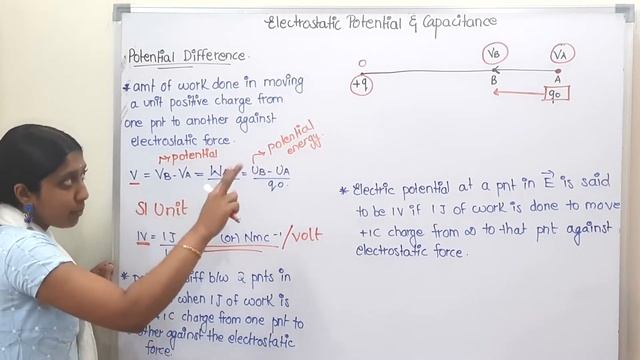 Electrostatic Potential & Capacitance
Potential Difference.
* amt of work done in moving
a unit positive charge from
one pnt to another against
electrostatic force.
potential
potential
energy.
V = VB - VA = = UB - UA
q0.
SI Unit
1V = 1J (or) Nmc-1 / volt
* diff b/w 2 pnts in
when 1J of work is
1C charge from one pnt to
against the electrostatic
force.
O
+q
VB
VA
B
A
q0
* Electric potential at a pnt in E is said
to be 1V if 1J of work is done to move
+1C charge from ∞ to that pnt against
electrostatic force.